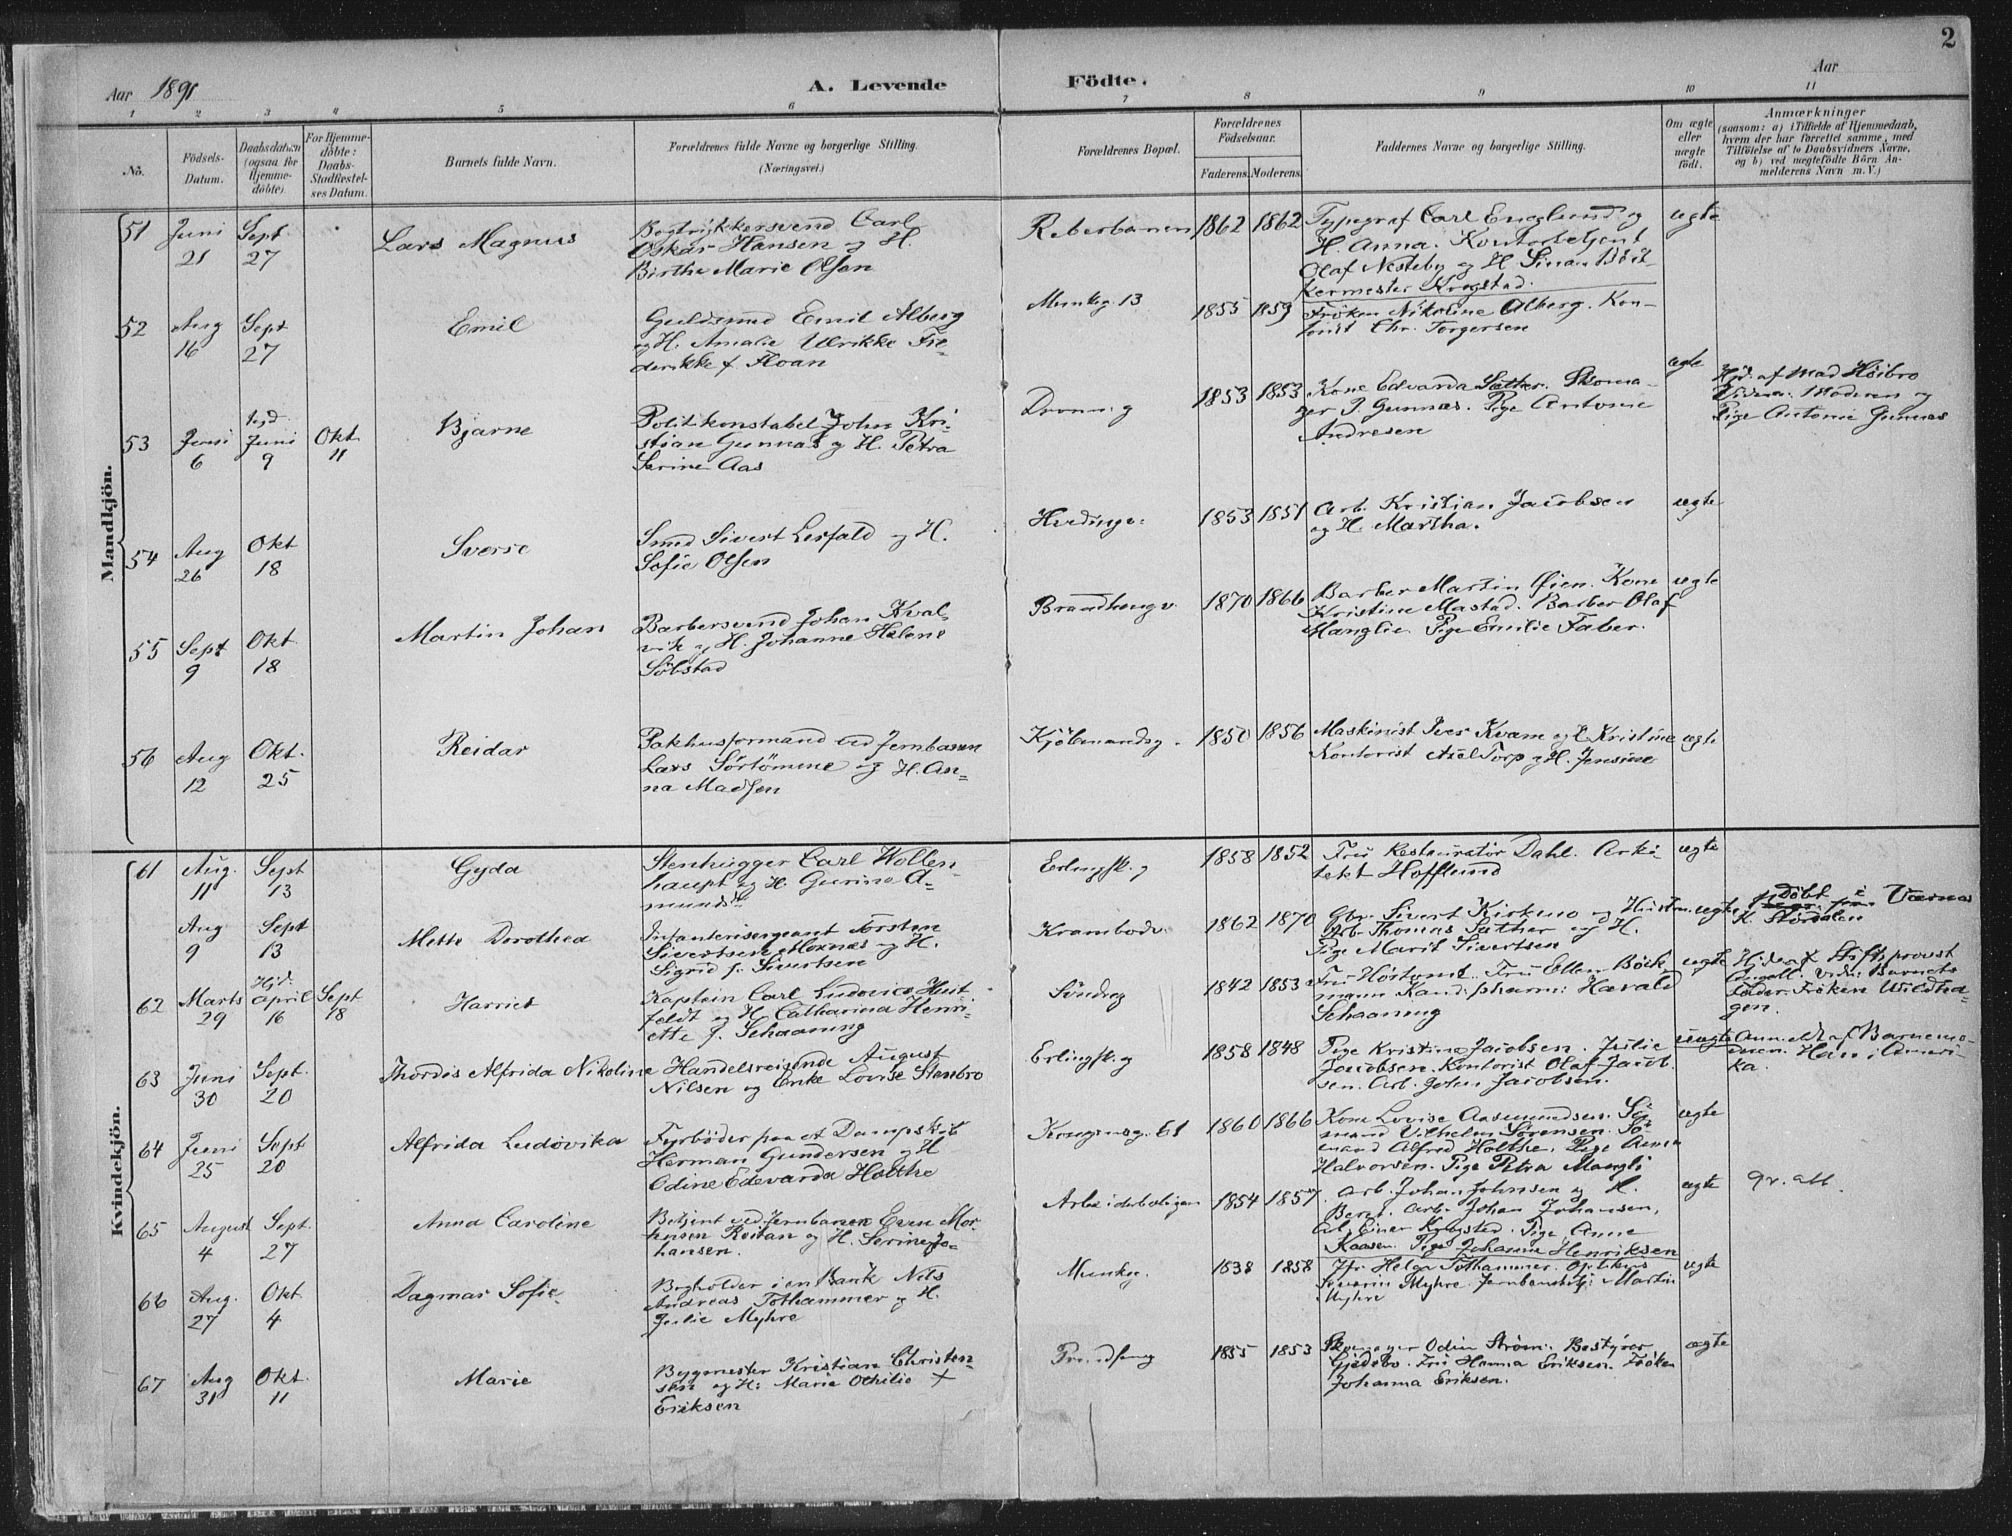 2
Aar 1891
A. Levende Födte.
Aar
1 2 3 4 5 6 7 8 9 10 11
No.
Födsels-Datum.
Daabsdatum (ogsaa for Hjemme-döbte)
For Hjemme-döbte: Daabs-Stadfæstel-ses Datum.
Barnets fulde Navn.
Forældrenes fulde Navne og borgerlige Stilling.
(Næringsvei.)
Forældrenes Bopæl.
Forældrenes Födselsaar.
Faderens. Moderens.
Faddernes Navne og borgerlige Stilling.
Om ægte eller uægte födt.
Anmærkninger
(saasom: a) i Tilfælde af Hjemmedaab,
hvem der har forrettet samme, med
Tilföielse af to Daabsvidners Navne,
og b) ved uægtefödte Börn An-
melderens Navn m. V.)
Mandkjön.
51 Juni 21 Sept. 27 Lars Magnus
Bogtrykkersvend Carl
Oskar Hansen og H.
Birthe Marie Olsen
Reberbanen 1862 1862
Typograf Carl Englund og
H. Anna. Kontorbetjent
Olaf Nesteby og H. Sina. Bök-
kermester Krogstad.
ægte
52 Aug 16 Sept 27 Emil
Guldsmed Emil Alberg
og H. Amalie Ulrikke Fre-
derikke f. Floan
Munkg. 13 1855 1859
Fröken Nikoline Alberg. Kon-
torist Chr. Torgersen
ægte
53 Juni 6 Hjd. Juni 9 Okt 11 Bjarne
Politikonstabel John Kri-
stian Gunnas og H. Petra
Serine Aas
Dronn. g 1853 1853
Kone Edvarda Sæther. Skoma-
ger P. Gunnæs. Pige Antonie
Andresen
Hjd. af Mad Höibro
Vidner: Moderen og
Pige Antonie Gunnas
54 Aug 26 Okt 18 Sverre
Smed Sivert Lerfald og H.
Sofie Olsen
1853 1851
Arb. Kristian Jacobsen
og H. Martha.
ægte
55 Sept 9 Okt. 18 Martin Johan
Barbersvend Johan Kval-
vik og H. Johanne Helene
Söbstad
1870 1866
Barber Martin Öien. Kone
Kristine Mastad. Barber Olaf
Manglie. Pige Emilie Faber.
ægte
56 Aug 12 Okt. 25 Reidar
Pakhusformand ved Jernbanen
Lars Sörtömme og H. An-
na Madsen
Kjöbmandsg. 1850 1856
Maskinist Iver Kvam og H. Kristine
Kontorist Axel Torp og H. Jensine
ægte
Kvindekjön.
61 Aug. 11 Sept 13 Gyda
Stenhugger Carl Wollen-
haupt og H. Gurine A-
mundsd.
Erlingsk. g 1858 1852
Fru Restauratör Dahl. Arki-
tekt Hofflund
ægte
Aug 9 Sept 13 Mette Dorothea
Infanterisergeant Torsten
Sivertsen Moxnes og H.
Sigrid f. Sivertsen
Krambodv. 1862 1870
Gbr. Sivert Kirkmo og Hustru.
Arb. Thomas Sæther og H.
Pige Marit Sivertsen
ægte
Döbt i Værnes
K. Stördalen
62 Marts 29 Hjd. April 16 Sept 18 Harriet
Kaptein Carl Ludovico Huit-
feldt og H. Catharina Henri-
ette f. Schaanning
Söndreg 1842 1853
Fru Höstomt. Fru Ellen Böck-
mann Kand. pharm: Harald
Schaanning
ægte
Hjd. af Stiftsprovst
Vidn: Barnets
Fader. Fröken Wildha-
gen.
63 Juni 30 Sept. 20 Thordis Alfrida Nikoline
Handelsreisende August
Nilsen og Enke Lovise Stenbro
Erlingsk. g 1858 1848
Pige Kristine Jacobsen. Julie
Jacobsen. Kontorist Olaf Jacob-
sen. Arb. John Jacobsen.
uægte
Anmeldt af Barnemo-
deren. Han i Ameri-
ka.
64 Juni 25 Sept 20 Alfrida Ludovika
Fyrböder paa et Dampskib
Herman Gundersen og H
Odine Edevarda Holthe
Kongensg. 61 1860 1866
Kone Lovise Aasmundsen. Sö-
mand Vilhelm Sörensen. Sö-
mand Alfred Holthe. Pige Anna
Halvorsen. Pige Petra Mangli
ægte
65 August 4 Sept. 27 Anna Caroline
Betjent ved Jernbanen Even Mor-
tensen Reitan og H. Serine Jo-
hansen.
Arbeiderboligen 1854 1857
Arb. Johan Johnsen og H.
Beret. Arb. Johan Johansen.
Einer Kybsted. Pige Anne
Kaasen. Pige Johanne Henriksen
ægte
gr. att.
66 Aug. 27 Okt. 4 Dagmar Sofie
Bogholder i en Bank Nils
Andreas Tothammer og H.
Julie Myhre
Munkg. 1838 1858
Jfr Helga Tothammer. Optikus
Severin Myhre. Jernbanebetj. Martin
Myhre
ægte
67 Aug 31 Okt. 11 Marie
Bygmester Kristian Christen-
sen og H: Marie Othilie
Eriksen
1855 1853
Skomager Odin Ström. Bestyrer
Gjedebo. Fru Hanna Eriksen. Fröken
Johanna Eriksen.
ægte